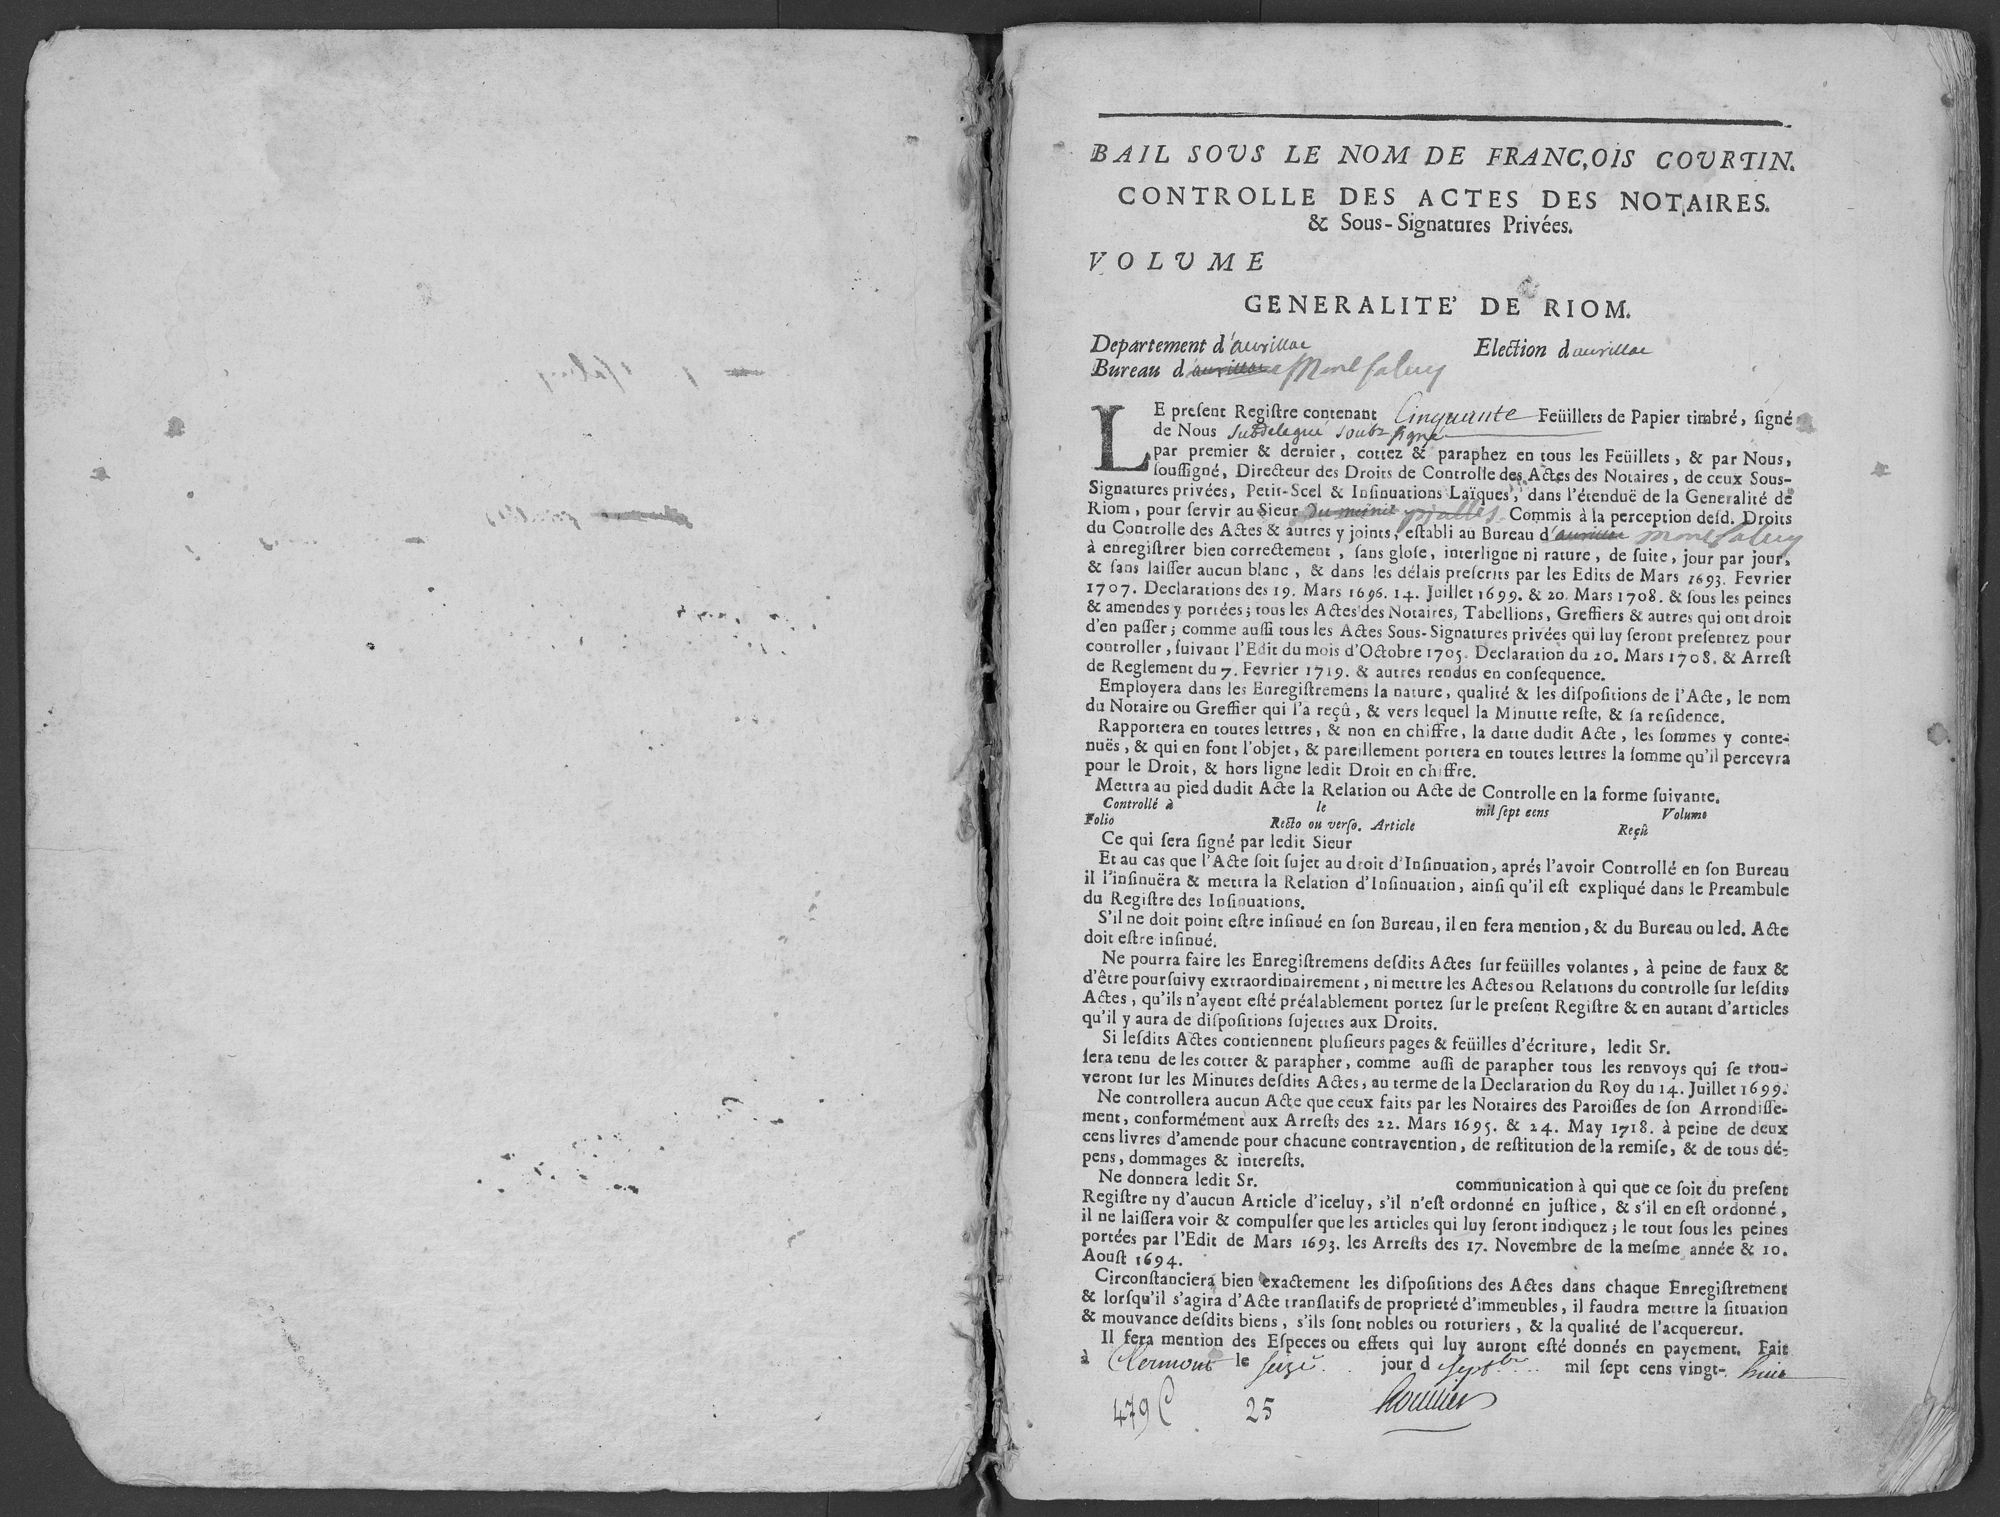 BAIL SOUS LE NOM DE FRANC,OIS COURTIN.
CONTROLLE DES ACTES DES NOTAIRES.
& Sous-Signatures Privées.
VOLUME
GENERALITE' DE RIOM.
Departement d'aurillac Election d aurillac
Bureau d'aurillac Montsaluy
LE preſent Regiſtre contenant Cinquante Feüillets de Papier timbré, ſigné
de Nous subdelegué soubz signé
par premier & dernier, cottez & paraphez en tous les Feüillets, & par Nous,
ſouſſigné, Directeur des Droits de Controlle des Actes des Notaires, de ceux Sous-
Signatures privées, Petit-Scel & Inſinuations Laïques, dans l'étenduë de la Generalité de
Riom, pour ſervir au Sieur du meinil pjalles Commis à la perception deſd. Droits
du Controlle des Actes & autres y joints, eſtabli au Bureau d'aurillac Montsaluy
à enregiſtrer bien correctement, ſans gloſe, interligne ni rature, de ſuite, jour par jour,
& ſans laiſſer aucun blanc, & dans les délais preſcrits par les Edits de Mars 1693. Fevrier
1707. Declarations des 19. Mars 1696. 14. Juillet 1699. & 20. Mars 1708. & ſous les peines
& amendes y portées; tous les Actes des Notaires, Tabellions, Greffiers & autres qui ont droit
d'en paſſer; comme auſſi tous les Actes Sous-Signatures privées qui luy ſeront preſentez pour
controller, ſuivant l'Edit du mois d'Octobre 1705. Declaration du 20. Mars 1708. & Arreſt
de Reglement du 7. Fevrier 1719. & autres rendus en conſequence.
Employera dans les Enregiſtremens la nature, qualité & les diſpoſitions de l'Acte, le nom
du Notaire ou Greffier qui l'a reçû, & vers lequel la Minutte reſte, & ſa reſidence.
Rapportera en toutes lettres, & non en chiffre, la datte dudit Acte, les ſommes y conte-
nuës, & qui en font l'objet, & pareillement portera en toutes lettres la ſomme qu'il percevra
pour le Droit, & hors ligne ledit Droit en chiffre.
Mettra au pied dudit Acte la Relation ou Acte de Controlle en la forme ſuivante.
Controllé à le mil ſept cens Volume
Folio Recto ou verſo. Article Reçû
Ce qui ſera ſigné par ledit Sieur
Et au cas que l'Acte ſoit ſujet au droit d'Inſinuation, aprés l'avoir Controllé en ſon Bureau
il l'inſinuëra & mettra la Relation d'Inſinuation, ainſi qu'il eſt expliqué dans le Preambule
du Regiſtre des Inſinuations.
S'il ne doit point eſtre inſinué en ſon Bureau, il en fera mention, & du Bureau ou led. Acte
doit eſtre inſinué.
Ne pourra faire les Enregiſtremens deſdits Actes ſur feüilles volantes, à peine de faux &
d'être pourſuivy extraordinairement, ni mettre les Actes ou Relations du controlle ſur leſdits
Actes, qu'ils n'ayent eſté préalablement portez ſur le preſent Regiſtre & en autant d'articles
qu'il y aura de diſpoſitions ſujettes aux Droits.
Si leſdits Actes contiennent pluſieurs pages & feüilles d'écriture, ledit Sr.
ſera tenu de les cotter & parapher, comme auſſi de parapher tous les renvoys qui ſe trou-
veront ſur les Minutes deſdits Actes, au terme de la Declaration du Roy du 14. Juillet 1699.
Ne controllera aucun Acte que ceux faits par les Notaires des Paroiſſes de ſon Arrondiſſe-
ment, conformément aux Arreſts des 22. Mars 1695. & 24. May 1718. à peine de deux
cens livres d'amende pour chacune contravention, de reſtitution de la remiſe, & de tous dé-
pens, dommages & intereſts.
Ne donnera ledit Sr. communication à qui que ce ſoit du preſent
Regiſtre ny d'aucun Article d'iceluy, s'il n'eſt ordonné en juſtice, & s'il en eſt ordonné,
il ne laiſſera voir & compulſer que les articles qui luy ſeront indiquez; le tout ſous les peines
portées par l'Edit de Mars 1693. les Arreſts des 17. Novembre de la meſme année & 10.
Aouſt 1694.
Circonſtanciera bien exactement les diſpoſitions des Actes dans chaque Enregiſtrement
& lorſqu'il s'agira d'Acte tranſlatifs de proprieté d'immeubles, il faudra mettre la ſituation
& mouvance deſdits biens, s'ils ſont nobles ou roturiers, & la qualité de l'acquereur.
Il fera mention des Eſpeces ou effets qui luy auront eſté donnés en payement. Fait
à Clermont le seize jour d septbre mil ſept cens vingt-huit
479 C 25